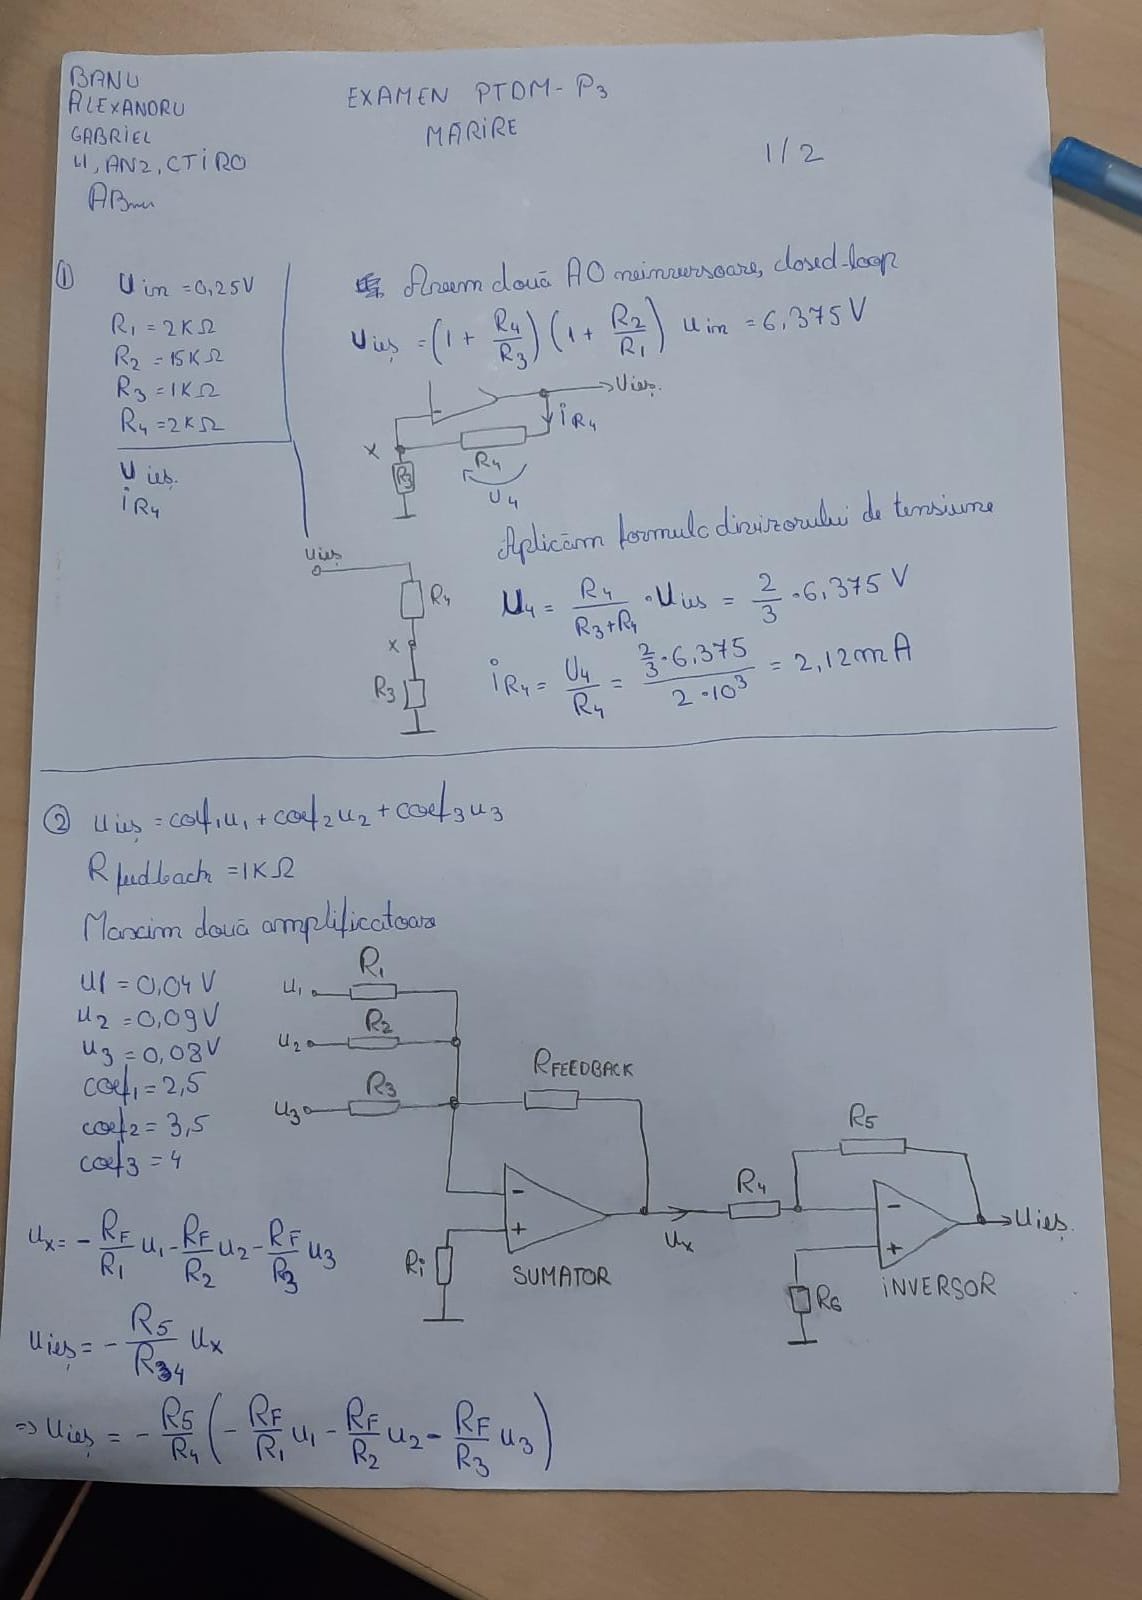 BANU
ALEXANDRU
GABRIEL
4, AN2, CTiRO
EXAMEN PTDM - P3
MĂRIRE
1/2
① Uin = 0,25V
R1 = 2KΩ
R2 = 15KΩ
R3 = 1KΩ
R4 = 2KΩ
Uieș.
iR4
Avem două AO neinversoare, closed-loop
Uieș = (1 + R4/R3)(1 + R2/R1) Uin = 6,375V
- Uieș.
iR4
X
R4
R3
U4
Uieș
R4
X
R3
Aplicăm formula divizorului de tensiune
U4 = R4/(R3+R4) · Uieș = 2/3 · 6,375 V
iR4 = U4/R4 = (2/3 · 6,375)/(2 · 10³) = 2,12mA
② Uieș = coef1u1 + coef2u2 + coef3u3
Rfeedback = 1KΩ
Maxim două amplificatoare
U1 = 0,04V
U2 = 0,09V
U3 = 0,08V
coef1 = 2,5
coef2 = 3,5
coef3 = 4
U1 R1
U2 R2
U3 R3
RFEEDBACK
- +
Ri
SUMATOR
Ux
R4
R5
- +
R6
iNVERSOR
Uieș.
Ux = - RF/R1 U1 - RF/R2 U2 - RF/R3 U3
Uieș = - R5/R4 Ux
=> Uieș = - R5/R4 (- RF/R1 U1 - RF/R2 U2 - RF/R3 U3)